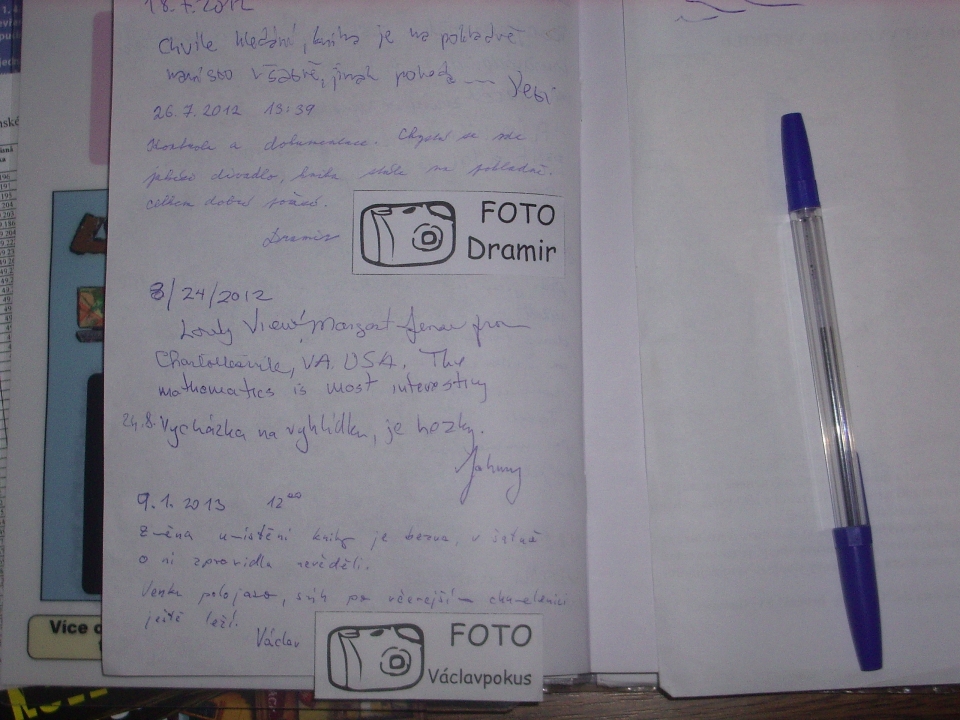 18.7.2012
Chvíle hledání, kniha je na pokladně
namísto v šatně, jinak pohoda --- Yebi
26.7.2012 13:39
Kontrola a dokumentace. Chystá se zde
divadlo, kniha stále na pokladně.
celkem dobré
Dramir
FOTO
Dramir
8/24/2012
Lovely View! Margaret from
Charlottesville, VA. USA. The
mathematics is most interesting
24.8. Vycházka na vyhlídku, je hezky.
Johnny
9.1.2013 12
Změna umístění knihy je bezva, v šatně
o ní zpravidla nevěděli.
Venku polojasno, sníh po včerejší chumelenici
ještě leží.
Václav
FOTO
Václavpokus
Více